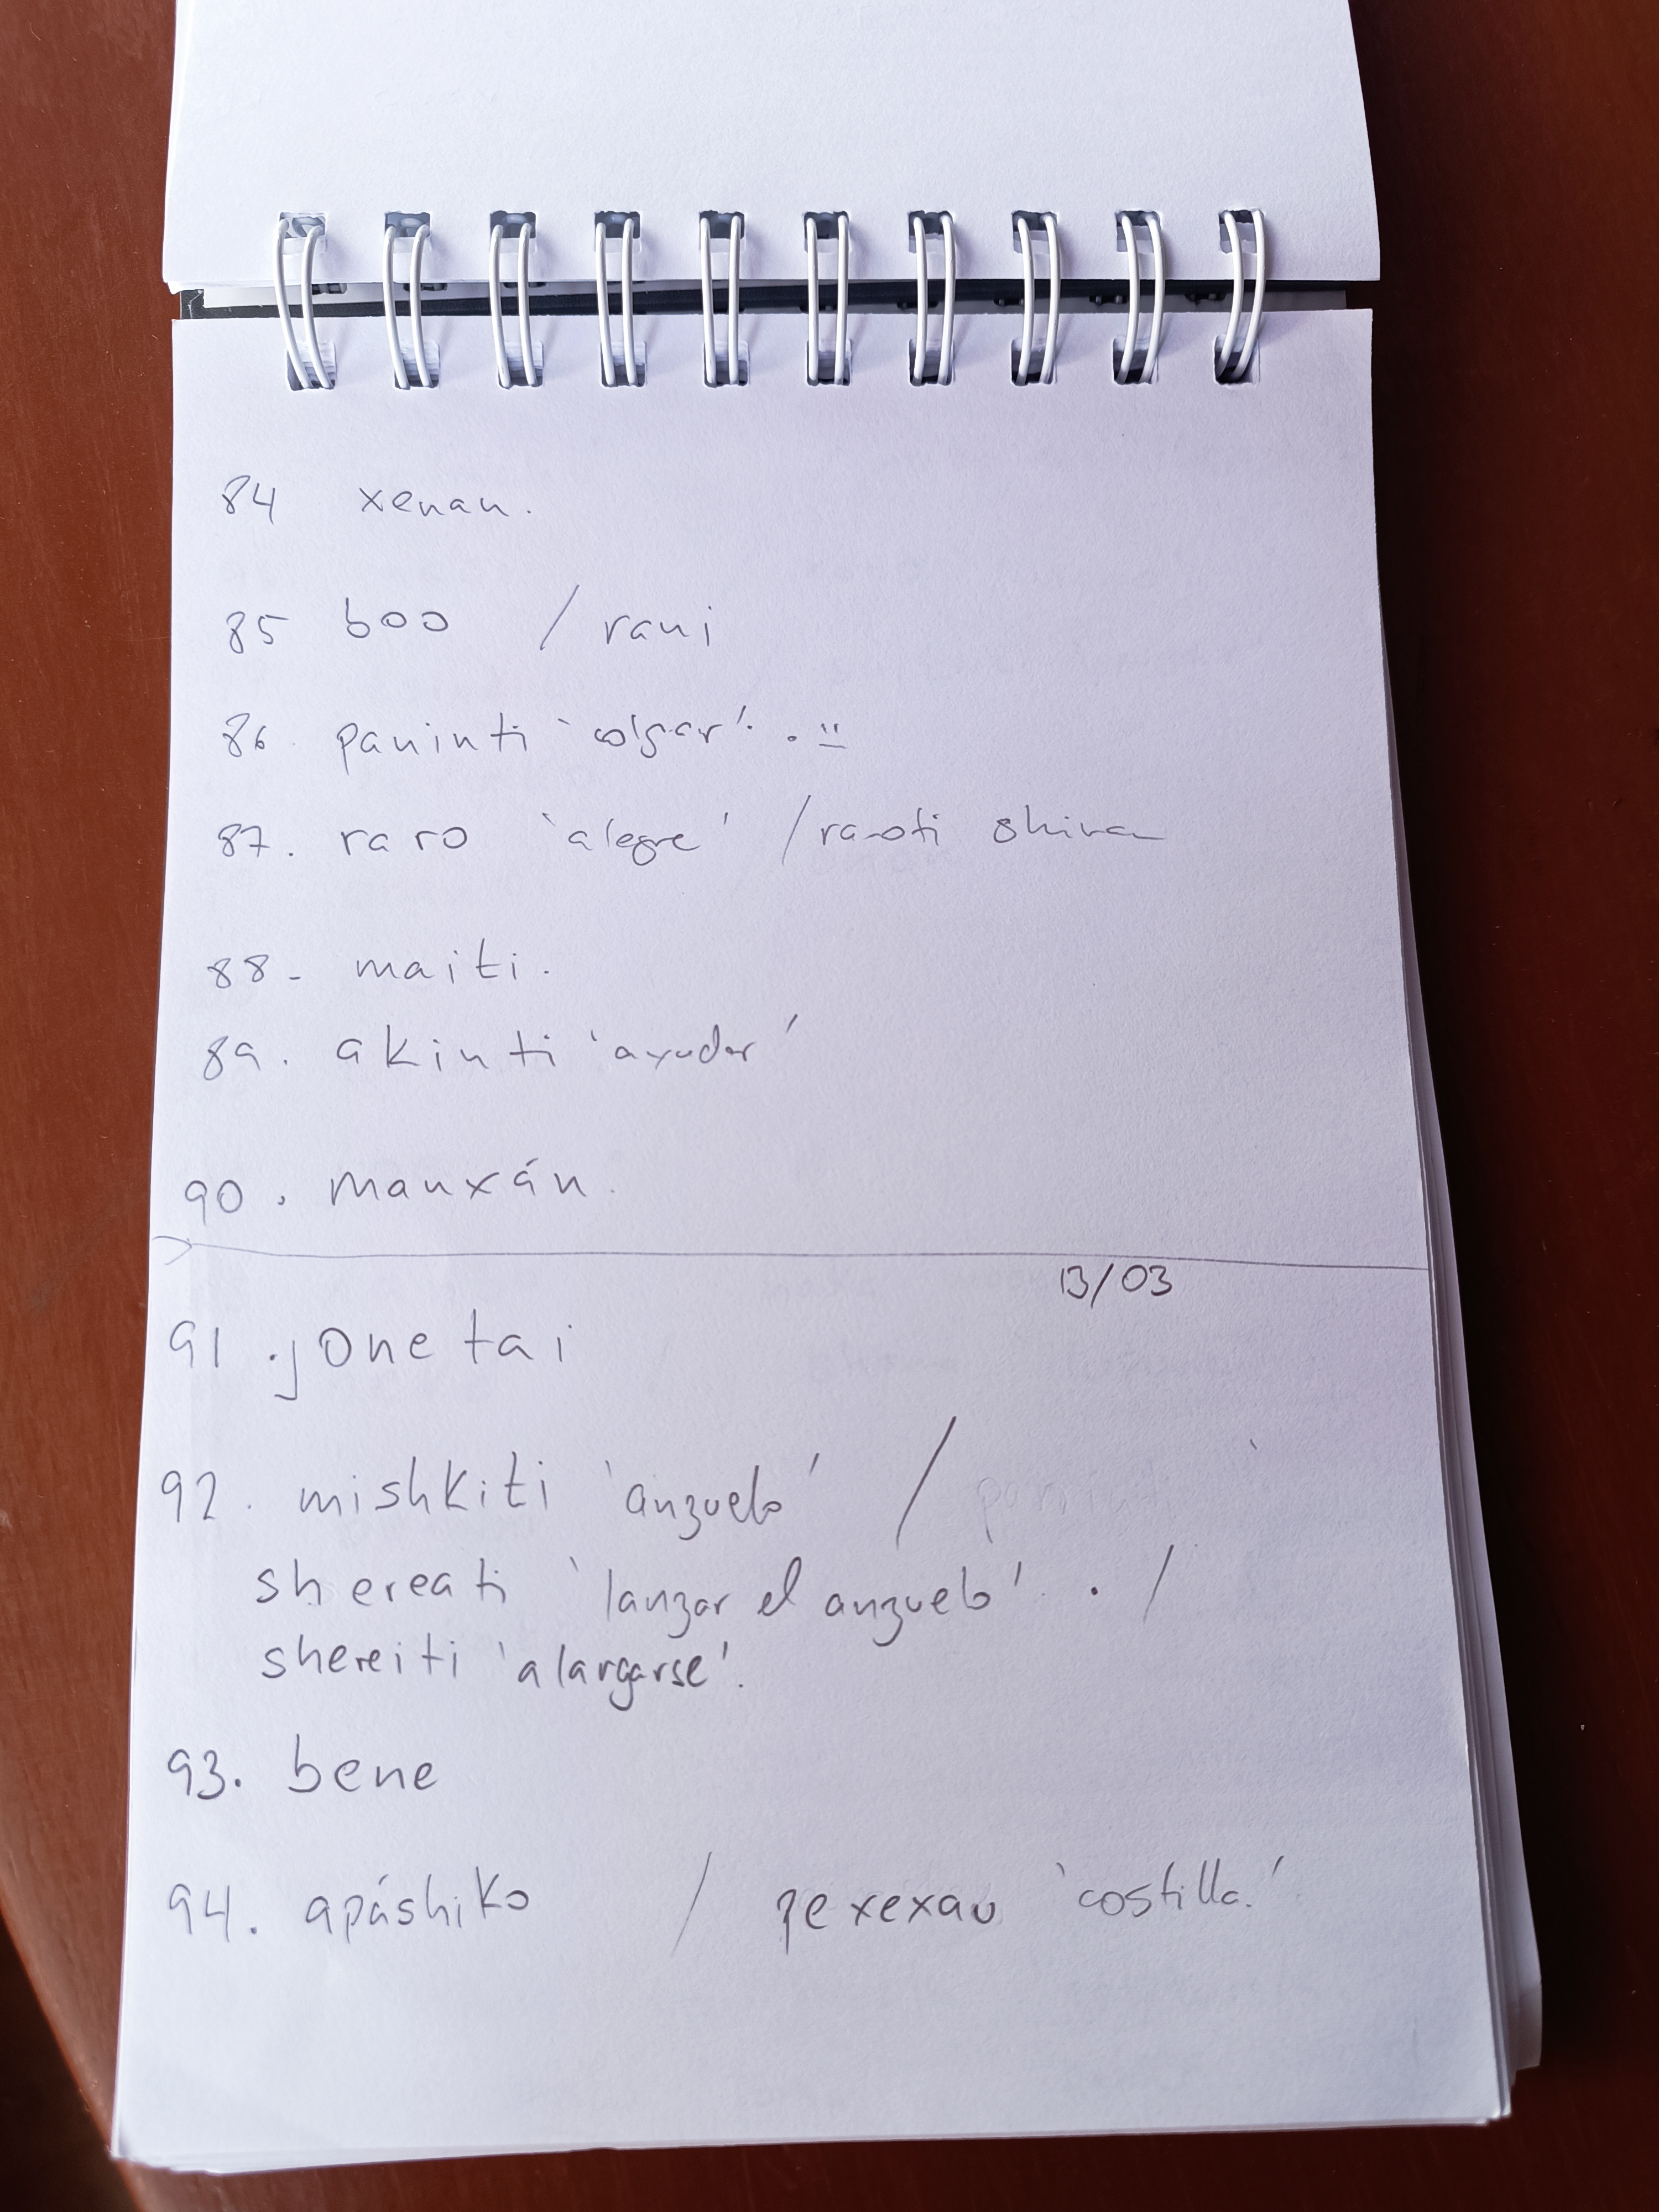 84 xenan.
85 boo / rani
86. paninti 'colgar'. . =
87. raro 'alegre' / raroti shinan
88- maiti.
89. akinti 'ayudar'
90. manxán.
13/03
91. jonetai
92. mishkiti 'anzuelo' /
shereati 'lanzar el anzuelo'. . /
shereiti 'alargarse'.
93. bene
94. apáshiko / pexexau 'costilla.'